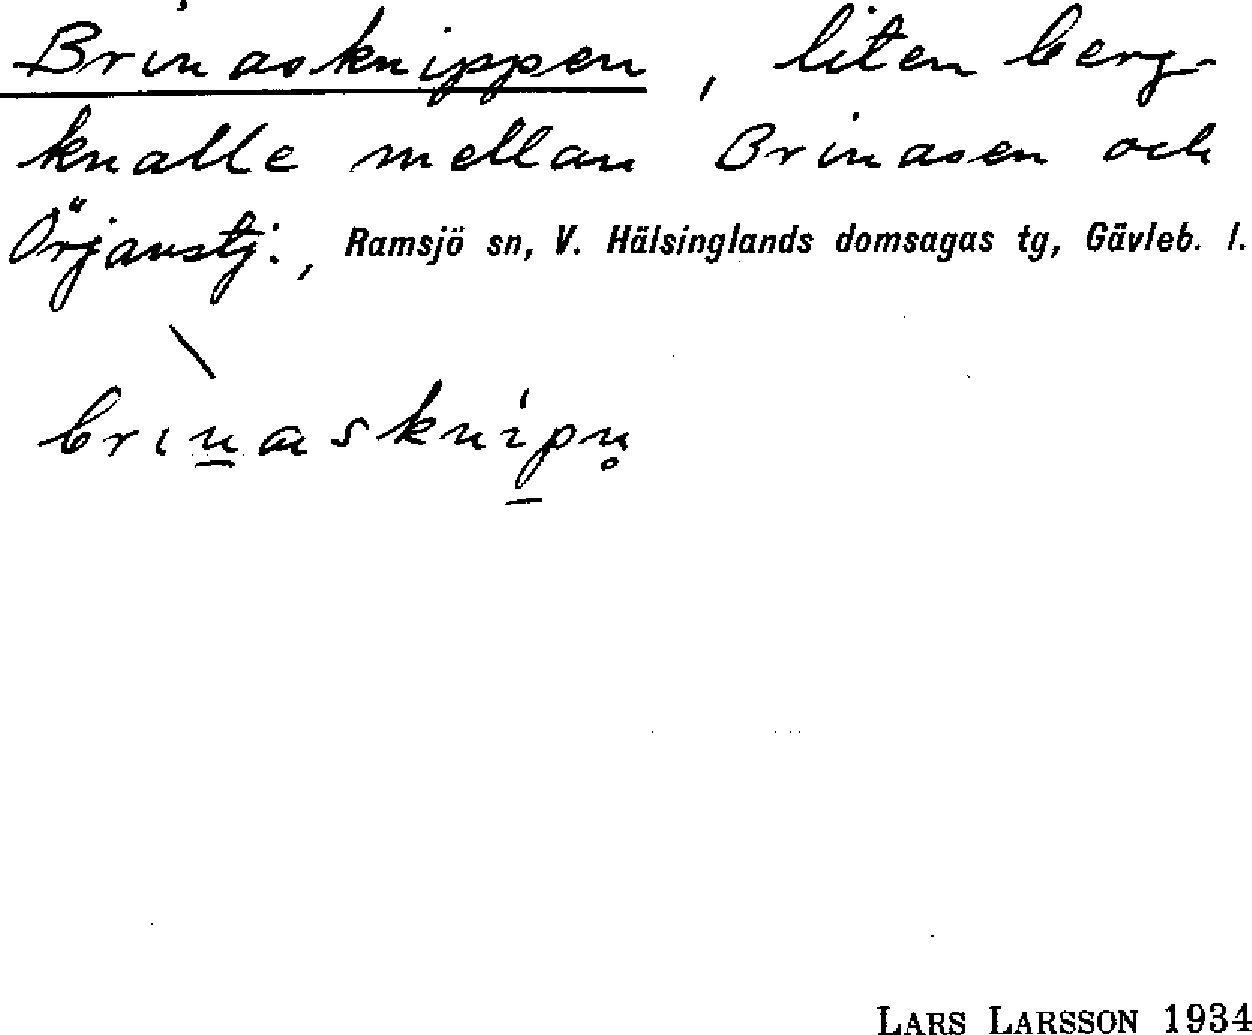 Brinasknippen, liten berg-
knalle mellan Brinasen och
Örjanstj., Ramsjö sn, V. Hälsinglands domsagas tg, Gävleb. l.
brinasknipn̥
LARS LARSSON 1934